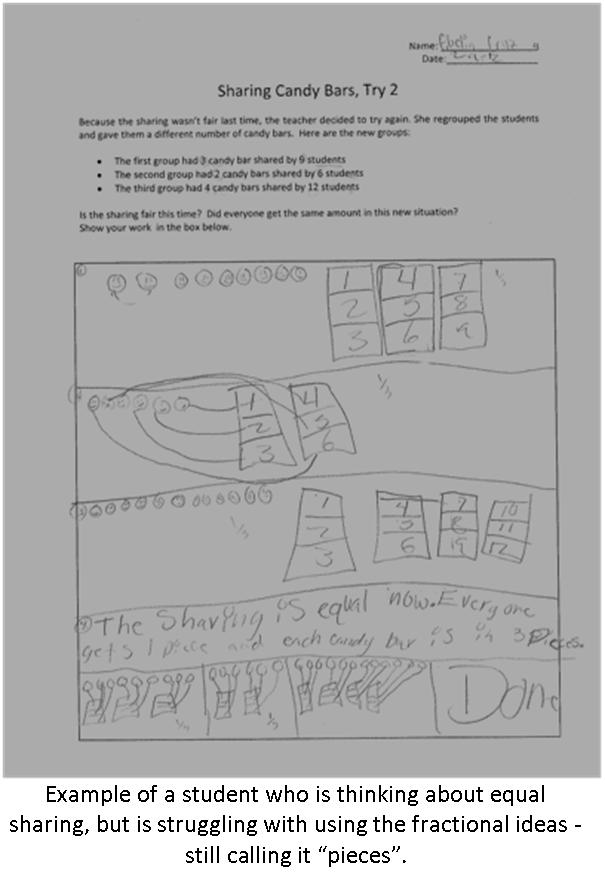 Name:
Date:
Sharing Candy Bars, Try 2
Because the sharing wasn't fair last time, the teacher decided to try again. She regrouped the students
and gave them a different number of candy bars. Here are the new groups:
• The first group had 3 candy bar shared by 9 students
• The second group had 2 candy bars shared by 6 students
• The third group had 4 candy bars shared by 12 students
Is the sharing fair this time? Did everyone get the same amount in this new situation?
Show your work in the box below.
1 4 7 1/3
2 5 8
3 6 9
1/3
1 4
2 5
3 6
1/3
1 4 7 10
2 5 8 11
3 6 9 12
The Sharing is equal now. Everyone
gets 1 piece and each candy bar is in 3 Pieces.
1/3 1/3 Done
Example of a student who is thinking about equal
sharing, but is struggling with using the fractional ideas -
still calling it “pieces”.